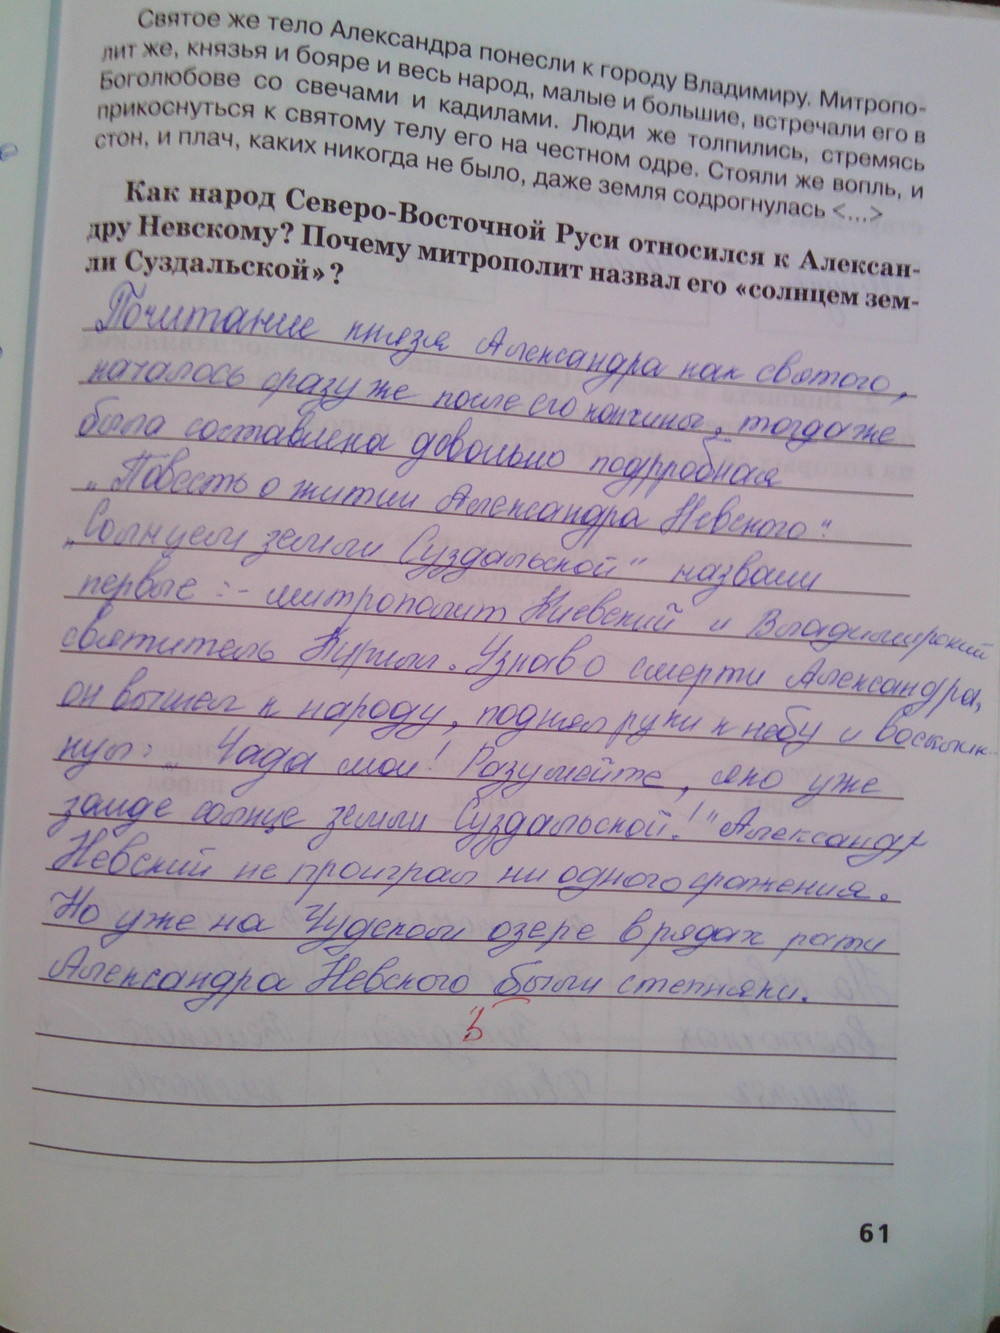 Святое же тело Александра понесли к городу Владимиру. Митропо-
лит же, князья и бояре и весь народ, малые и большие, встречали его в
Боголюбове со свечами и кадилами. Люди же толпились, стремясь
прикоснуться к святому телу его на честном одре. Стояли же вопль, и
стон, и плач, каких никогда не было, даже земля содрогнулась <...>
Как народ Северо-Восточной Руси относился к Алексан-
дру Невскому? Почему митрополит назвал его «солнцем зем-
ли Суздальской»?
Почитание князя Александра как святого,
началось сразу же после его кончины, тогда же
была составлена довольно подрробная
„Повесть о житии Александра Невского".
„Солнцем земли Суздальской" назвали
первые :- митрополит Киевский и Владимирский
святитель Кирилл. Узнав о смерти Александра,
он вышел к народу, поднял руки к небу и воскник-
нул: „Чада мои! Разумейте, яко уже
заиде солнце земли Суздальской!" Александр
Невский не проиграл ни одного сражения.
Но уже на Чудском озере в рядах рати
Александра Невского были степняки.
61